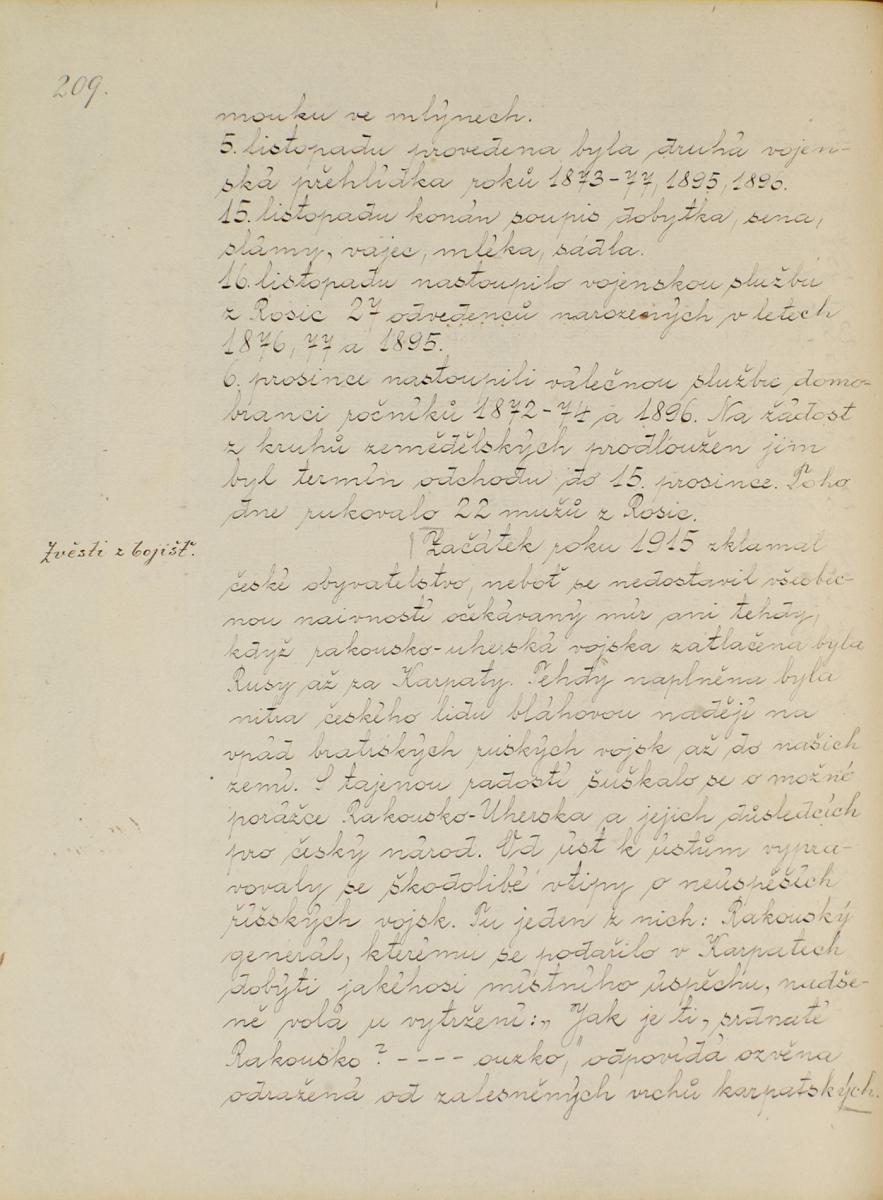 209.
mouku ve mlýnech.
5. listopadu provedena byla druhá vojen-
ská přehlídka roků 1873-77, 1895, 1896.
15. listopadu konán soupis dobytka, sena,
slámy, vajec, mléka, sádla.
16. listopadu nastoupilo vojenskou službu
z Rosic 27 odvedenců narozených v letech
1876, 77 a 1895.
6. prosince nastoupili válečnou službu domo-
branci ročníků 1872-74 a 1896. Na žádost
z kruhů zemědělských prodloužen jim
byl termín odchodu do 15. prosince. Toho
dne rukovalo 22 mužů z Rosic.
Zvěsti z bojišť.
Začátek roku 1915 zklamal
české obyvatelstvo, neboť se nedostavil všeobec-
nou naivností očekávaný mír ani tehdy,
když rakousko-uherská vojska zatlačena byla
Rusy až za Karpaty. Tehdy naplněna byla
nitra českého lidu bláhovou nadějí na
vpád bratrských ruských vojsk až do našich
zemí. S tajenou radostí šuškalo se o možné
porážce Rakousko-Uherska a jejich důsledcích
pro český národ. Od úst k ústům vypra-
vovaly se škodolibé vtipy o neúspěších
říšských vojsk. Tu jeden z nich: Rakouský
generál, kterému se podařilo v Karpatech
dobýti jakéhosi místního úspěchu, nadše-
ně volá u vytržení: „Jak je ti, srdnaté
Rakousko? - - - - ouzko," odpovídá ozvěna
odražená od zalesněných vrchů karpatských.